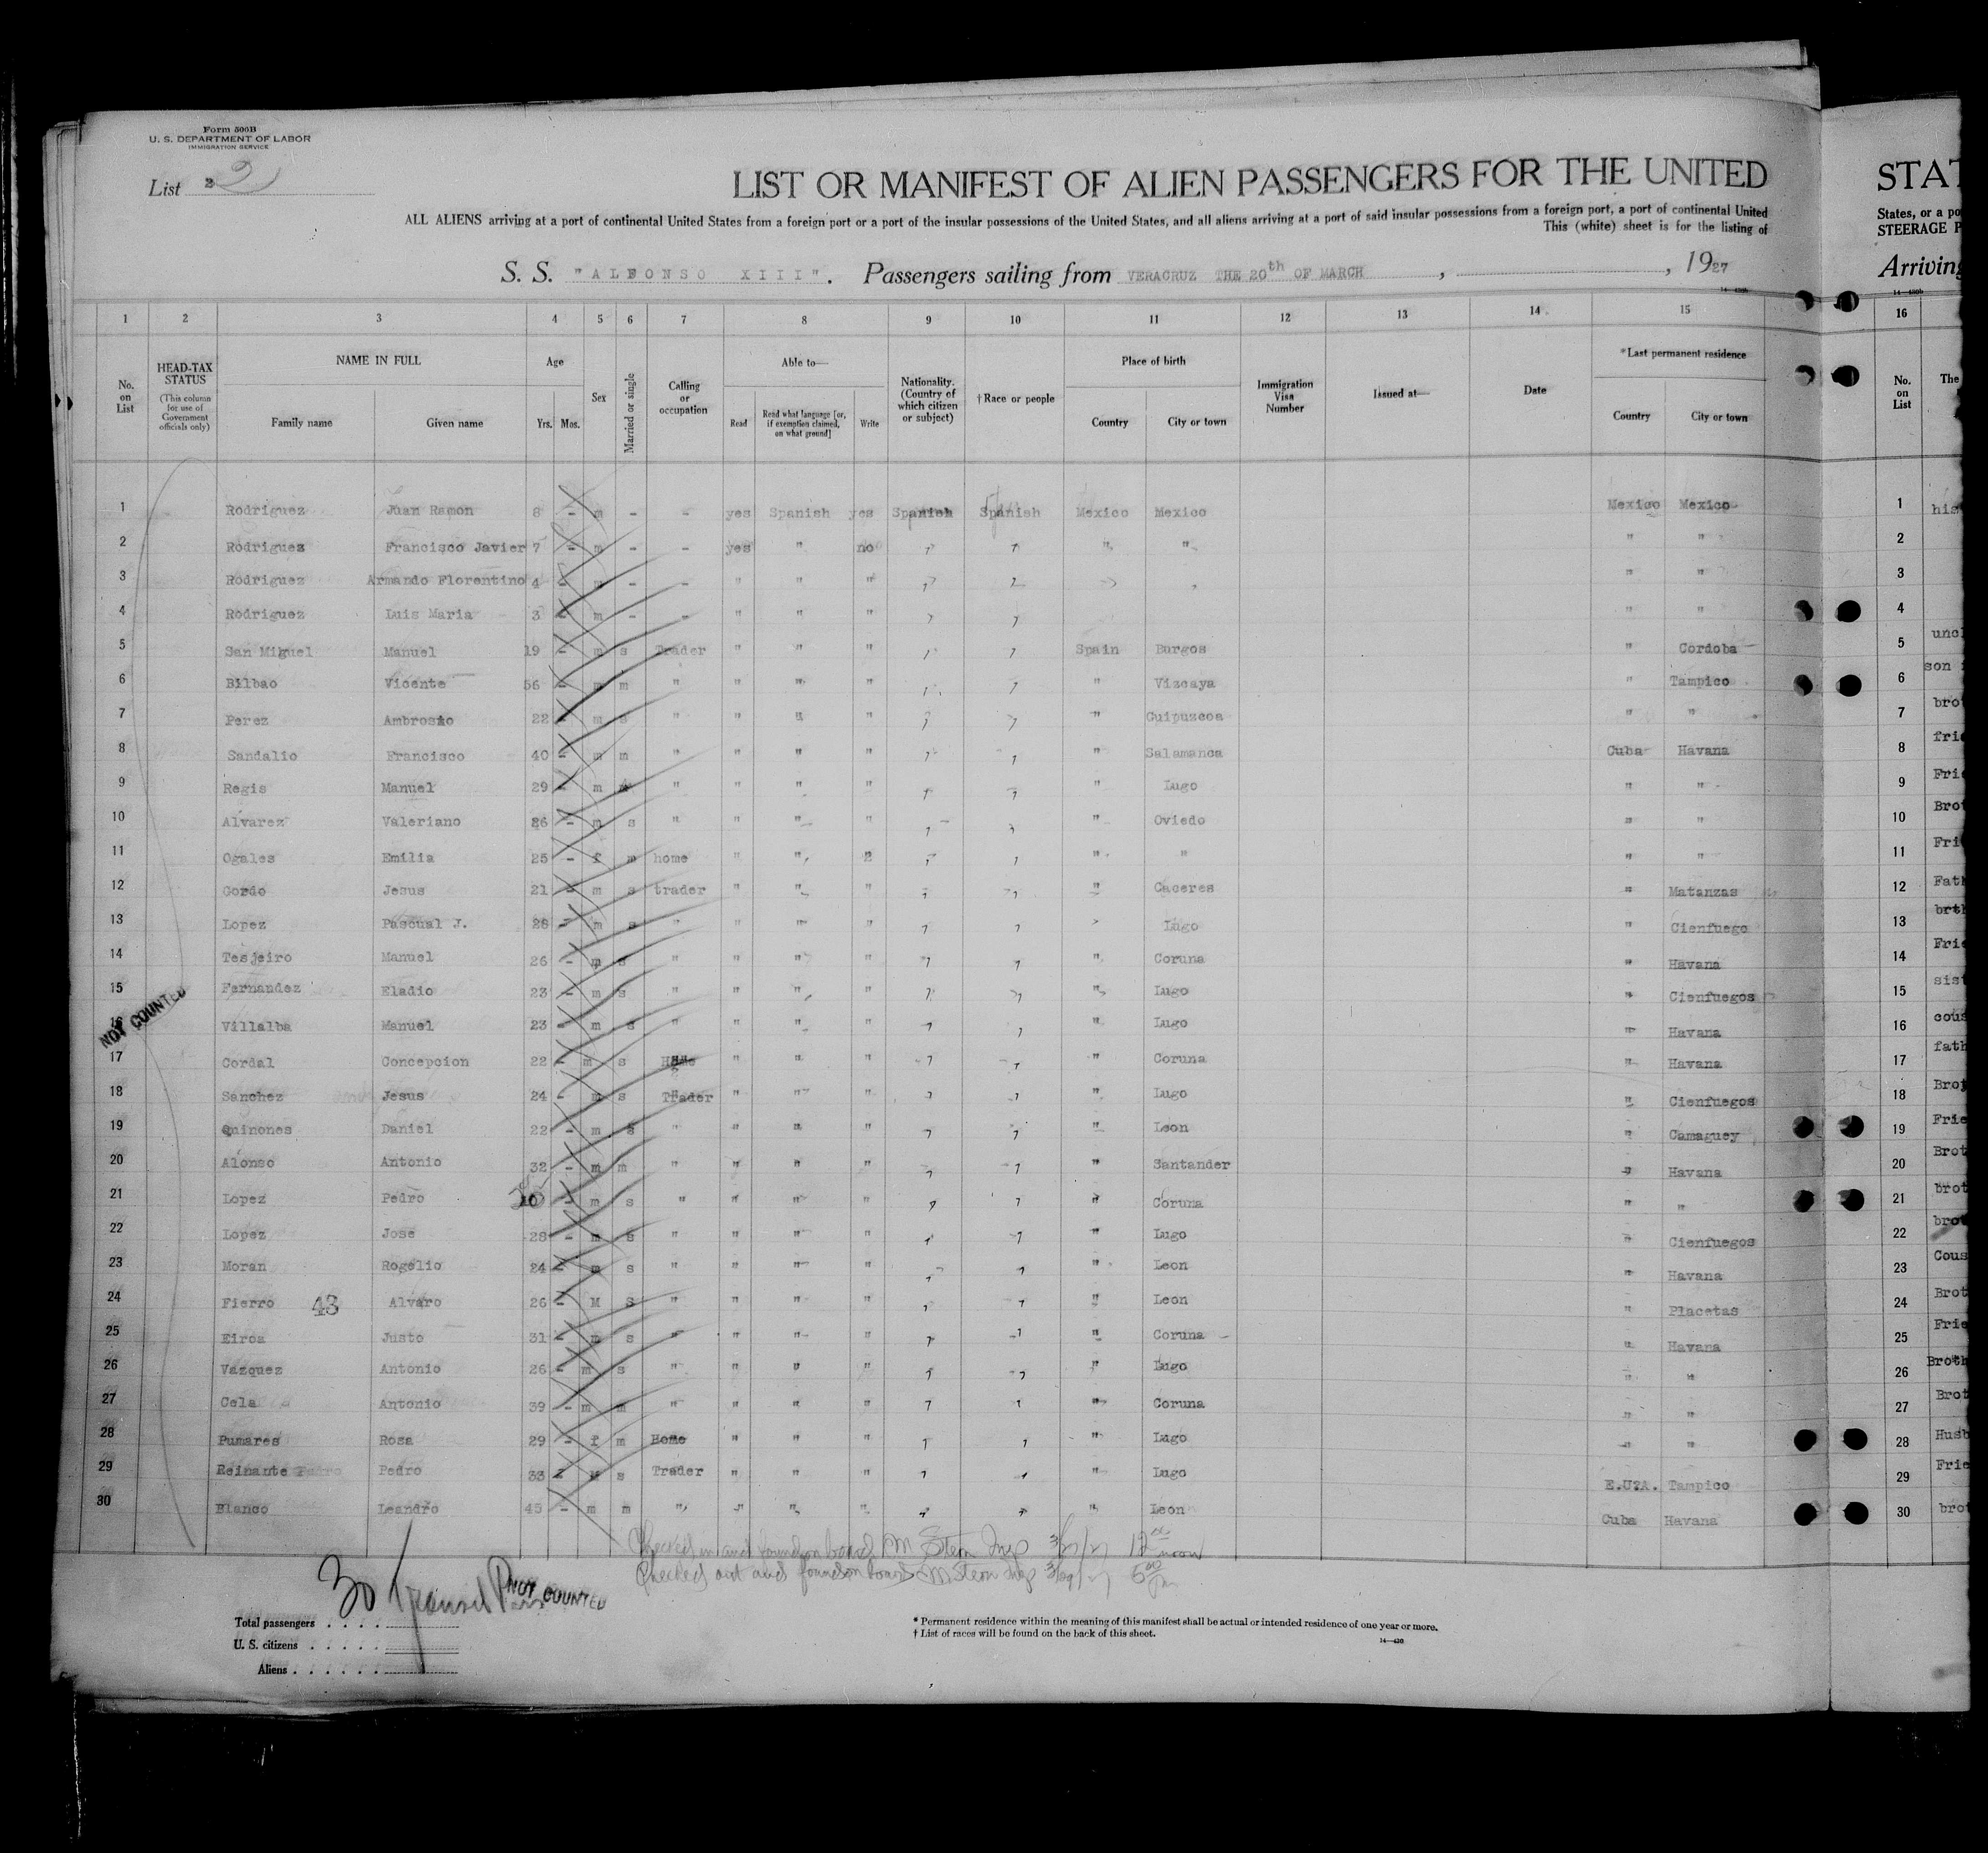 Form 500B
U. S. DEPARTMENT OF LABOR
IMMIGRATION SERVICE
List 2 2
LIST OR MANIFEST OF ALIEN PASSENGERS FOR THE UNITED
ALL ALIENS arriving at a port of continental United States from a foreign port or a port of the insular possessions of the United States, and all aliens arriving at a port of said insular possessions from a foreign port, a port of continental United
This (white) sheet is for the listing of
S. S. "ALFONSO XIII". Passengers sailing from VERACRUZ THE 20th OF MARCH, , 1927
14—430b
1 2 3 4 5 6 7 8 9 10 11 12 13 14 15
No. on List
HEAD-TAX STATUS (This column for use of Government officials only)
NAME IN FULL Family name Given name
Age Yrs. Mos.
Sex
Married or single
Calling or occupation
Able to— Read Read what language [or, if exemption claimed, on what ground] Write
Nationality. (Country of which citizen or subject)
†Race or people
Place of birth Country City or town
Immigration Visa Number
Issued at—
Date
*Last permanent residence Country City or town
1 Rodriguez Juan Ramon 8 - m - - yes Spanish yes Spanish Spanish Mexico Mexico Mexico Mexico
2 Rodriguez Francisco Javier 7 - m - - yes " no " " " " " "
3 Rodriguez Armando Florentino 4 - m - - " " " " " " " " "
4 Rodriguez Luis Maria 3 - m - - " " " " " " "
5 San Miguel Manuel 19 - m s Trader " " " " " Spain Burgos " Cordoba
6 Bilbao Vicente 56 - m m " " " " " " " Vizcaya " Tampico
7 Perez Ambrosio 22 - m s " " " " " " " Guipuzcoa " "
8 Sandalio Francisco 40 - m m " " " " " " " Salamanca Cuba Havana
9 Regis Manuel 29 - m " " " " " " " Lugo " "
10 Alvarez Valeriano 26 - m s " " " " " " " Oviedo " "
11 Ogales Emilia 25 - f m home " " " " " " " " "
12 Cordo Jesus 21 - m s trader " " " " " " Caceres " Matanzas
13 Lopez Pascual J. 28 - m s " " " " " " " Lugo " Cienfuego
14 Tesjeiro Manuel 26 - m s " " " " " " " Coruna " Havana
15 Fernandez Eladio 23 - m s " " " " " " " Lugo " Cienfuegos
16 Villalba Manuel 23 - m s " " " " " " " Lugo " Havana
17 Cordal Concepcion 22 - m s " " " " " " Coruna " Havana
18 Sanchez Jesus 24 - m s Trader " " " " " " Lugo " Cienfuegos
19 Quinones Daniel 22 - m s " " " " " " " Leon " Camaguey
20 Alonso Antonio 32 - m m " " " " " " " Santander " Havana
21 Lopez Pedro - m s " " " " " " " Coruna " "
22 Lopez Jose 28 - m s " " " " " " " Lugo " Cienfuegos
23 Moran Rogelio 24 - m s " " " " " " " Leon " Havana
24 Fierro 43 Alvaro 26 - M S " " " " " " " Leon " Placetas
25 Eiroa Justo 31 - m s " " " " " " " Coruna " Havana
26 Vazquez Antonio 26 - m s " " " " " " " Lugo " "
27 Cela Antonio 39 - m m " " " " " " " Coruna " "
28 Pumares Rosa 29 - f m Home " " " " " " Lugo " "
29 Reinante Pedro Pedro 33 - M s Trader " " " " " " Lugo E.U.A. Tampico
30 Blanco Leandro 45 - m m " " " " " " " Leon Cuba Havana
NOT COUNTED
Checked in and found on board M Stern Insp 3/27/27 12 00 noon
Checked out and found on board M Stern Insp 3/29/27 5 00 pm
30 Transit Pass
NOT COUNTED
Total passengers . . . .
U. S. citizens . . . . .
Aliens . . . . . .
* Permanent residence within the meaning of this manifest shall be actual or intended residence of one year or more.
† List of races will be found on the back of this sheet.
14—430
STAT
States, or a po
STEERAGE P
Arriving
14—430b
16
No. on List
The
1 his
2
3
4
5 uncl
6 son
7 brot
8 frie
9 Frie
10 Brot
11 Fri
12 Fath
13 brth
14 Frie
15 sist
16 cous
17 fath
18 Brot
19 Frie
20 Brot
21 brot
22 brot
23 Cous
24 Brot
25 Frie
26 Broth
27 Brot
28 Husb
29 Frie
30 brot